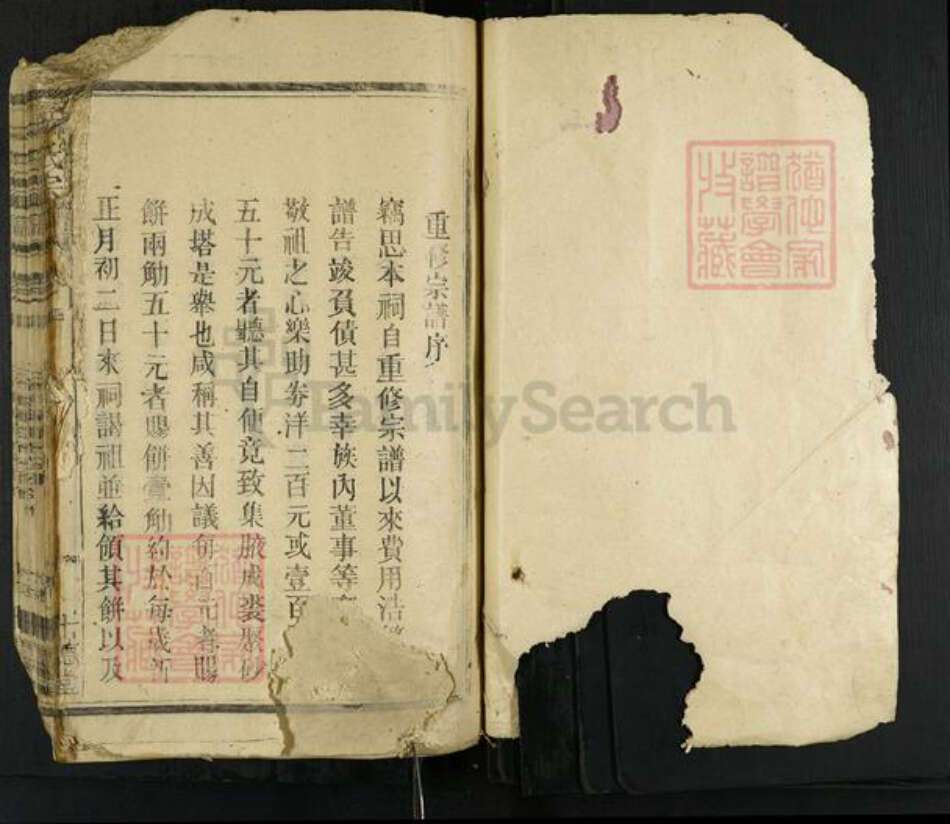 重修宗譜序
竊思本祠自重修宗譜以來費用浩
譜告竣負債甚多幸族內董事等
敬祖之心樂助券洋二百元或壹百
五十元者聽其自便竟致集腋成裘聚砂
成塔是舉也咸稱其善因議每百元者賜
餅兩觔五十元者賜餅壹觔約於每歲新
正月初二日來祠謁祖並給領其餅以及
猶他家
譜學會
收藏
FamilySearch